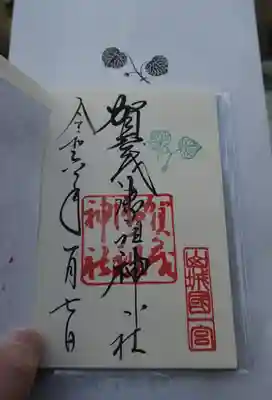 賀茂御祖神社
令和六年一月七日
賀茂
御祖
神社
山城國一宮